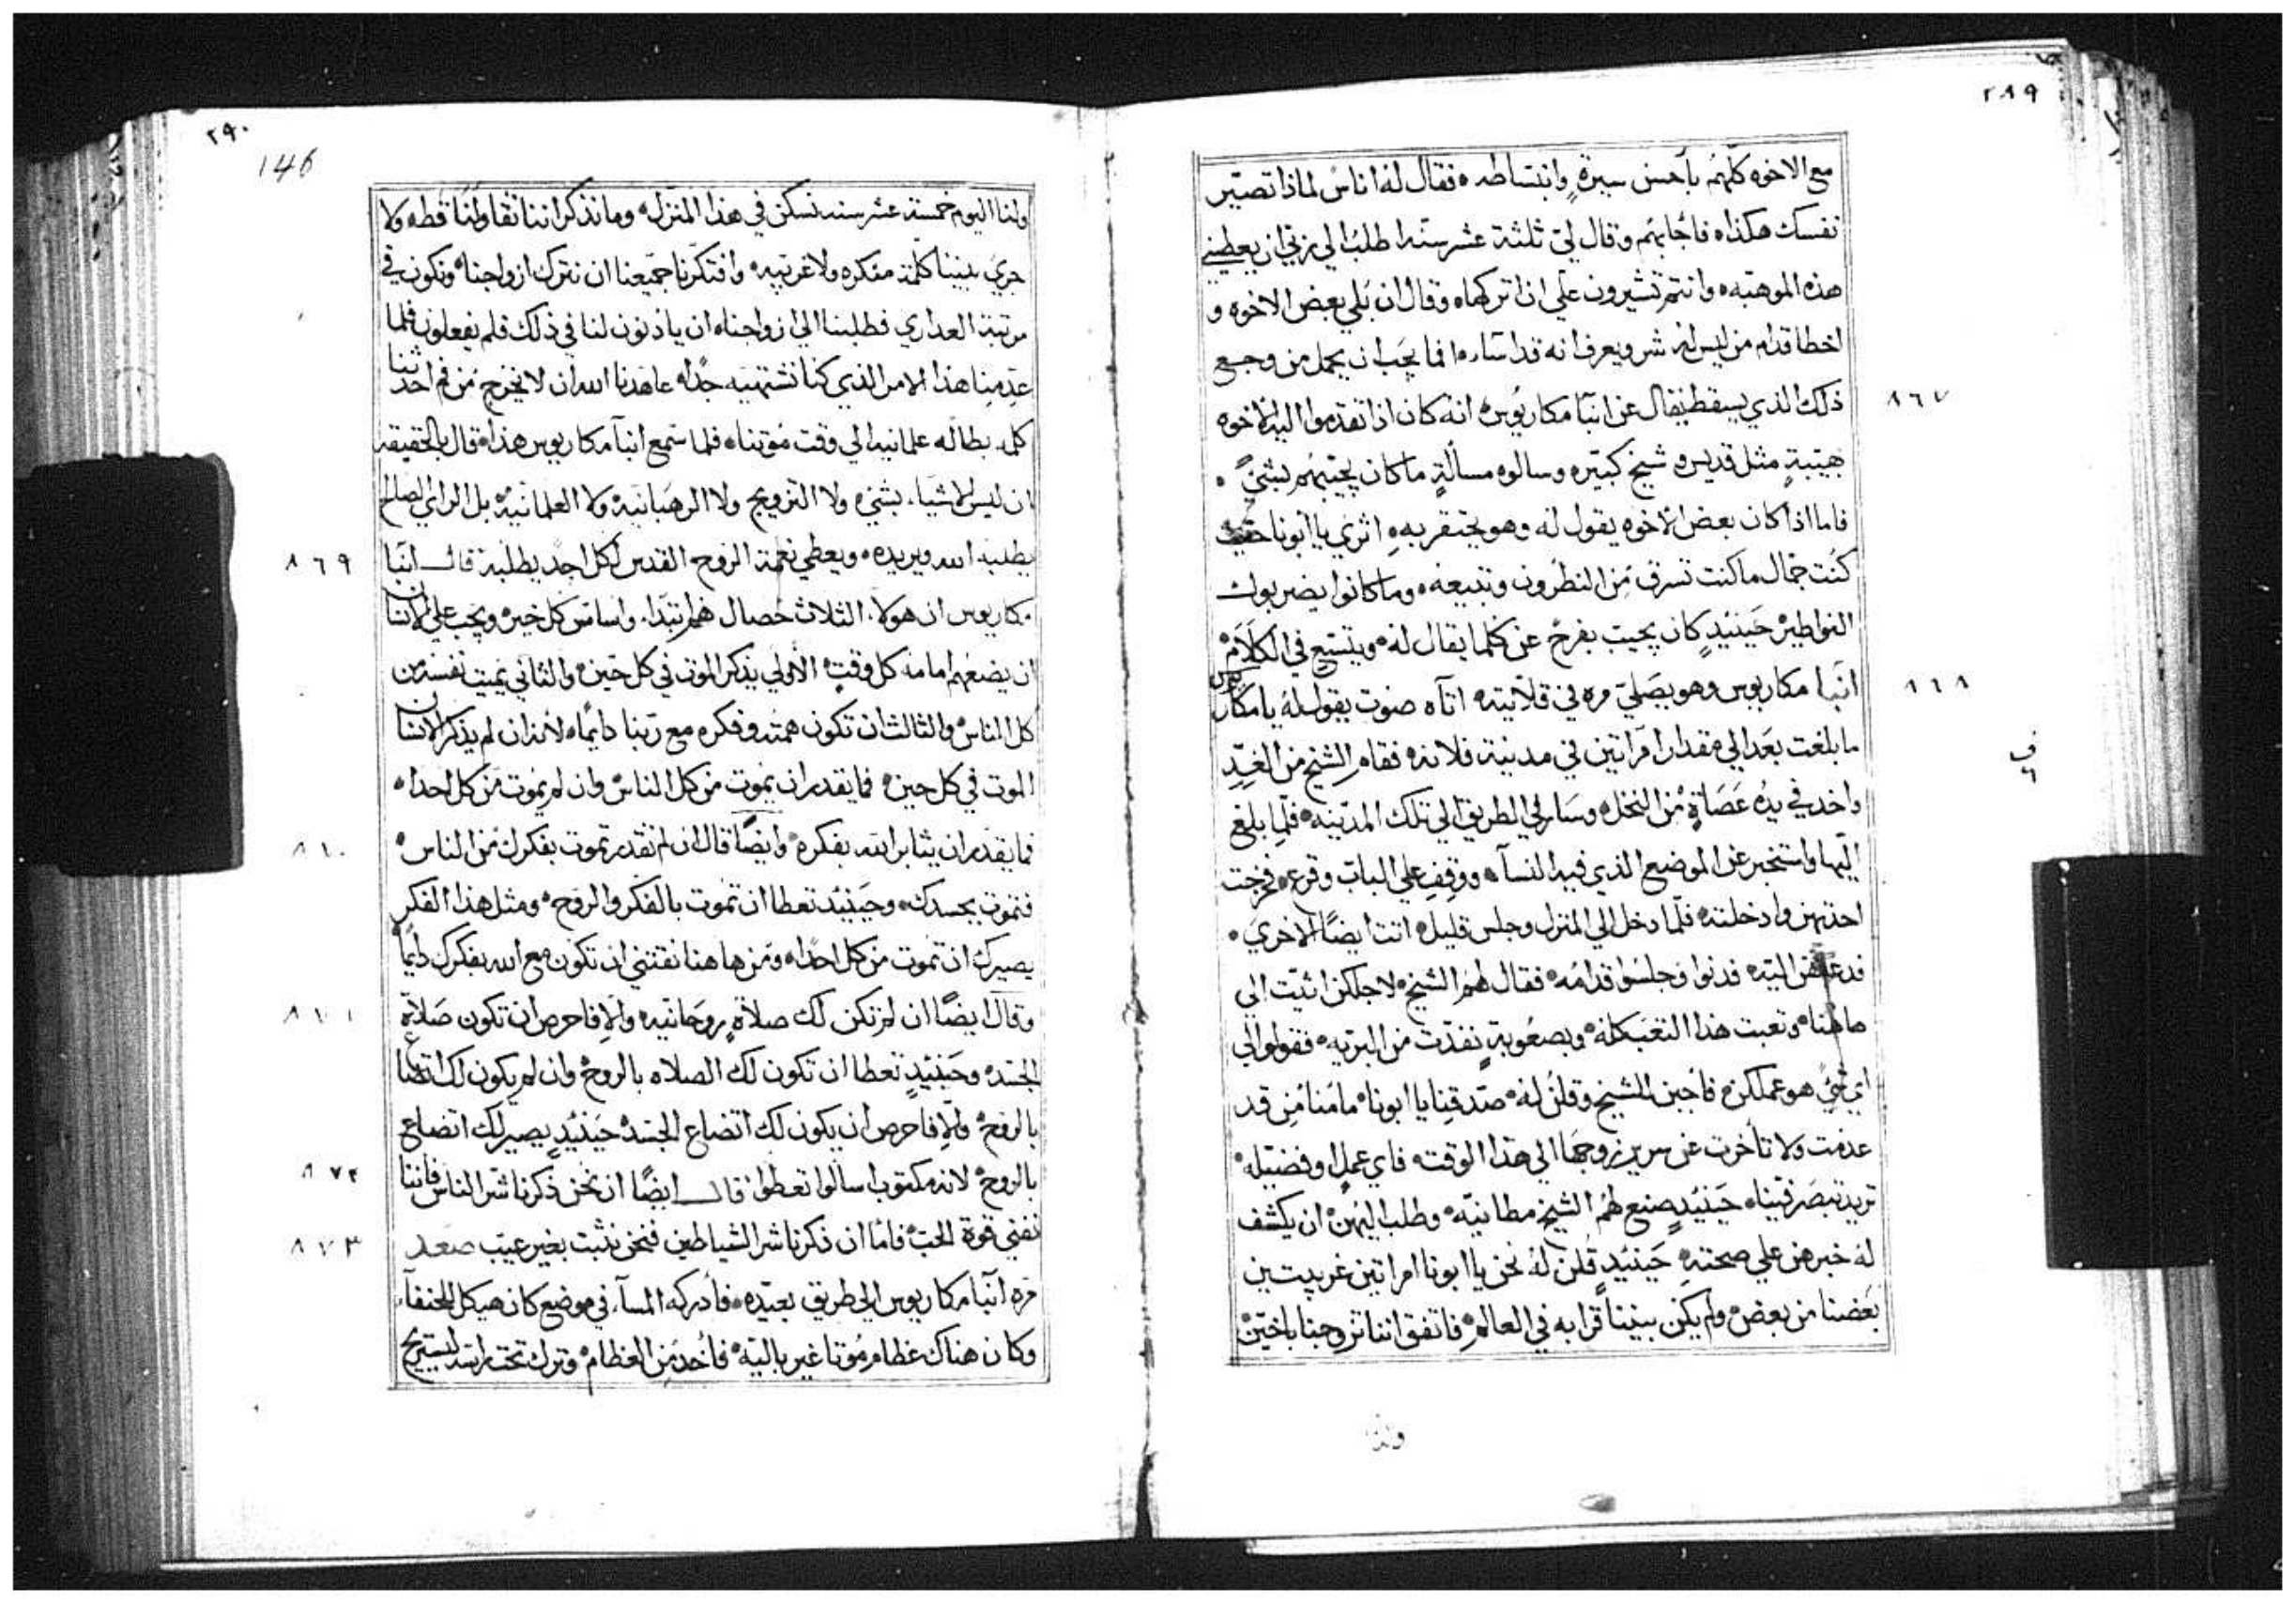 ٢٨٩
مع الاخوه كلهم بأحسن سيرةٍ وابتساطه فقال له اناسٌ لماذا تصيّر
نفسك هكذاه فاجابهم وقال لي ثلثة عشر سنه اطلبُ الي ربي ان يعطيني
هذه الموهبه وانتم تشيرون علي ان اتركهاه وقال ان بُلي بعض الاخوه و
اخطا قدام من ليس له شر ويعرف انه قد اساء فما يجب ان يحمل من وجع
ذلك الذي يسقط يقال عن انبا مكاريوس انه كان اذا تقدموا اليه الاخوه
٨٦٧
بهيبةٍ مثل قديس وشيخ كبير وسالوه مسألةٍ ما كان يجيبهم بشيءٍ
فاما اذا كان بعض الاخوه يقول له وهو يحتقر به اتري يا ابونا حيث
كُنت جمال ما كنت تسرق من النطرون وتبيعه وما كانوا يضربوك
النواطير حينيدٍ كان يجيب بفرح عن كلما يقال له ويتسع في الكلام
انبا مكاريوس وهو يصلي مره في قلايته اتاه صوت يقول له يا مكاريوس
٨٦٨
ما بلغت بعد الي مقدار امراتين في مدينة فلانه فقام الشيخ من الغدِ
واخد في يده عصاةٍ من النخل وسار في الطريق الي تلك المدينه فلما بلغ
اليها واستخبر عن الموضع الذي فيه النسآ ووقف علي الباب وقرع فخرجت
احدتهن وادخلته فلما دخل الي المنزل وجلس قليل اتت ايضًا الاخري
فدعاهن اليه فدنوا وجلسوا قدامه فقال لهم الشيخ لاجلكن اتيت الي
هاهنا وتعبت هذا التعب كله وبصعوبةٍ نفدت من البريه فقولوا لي
اي شيٍ هو عملكن فاجبن الشيخ وقلن له صدقنا يا ابونا ما منا من قد
عدمت ولا تأخرت عن سرير زوجها الي هذا الوقت فاي عملٍ او فضيله
تريد تبصر فينا حينيدٍ صنع لهم الشيخ مطانيه وطلب اليهن ان يكشف
له خبرهن علي صحته حينيدٍ قلن له نحن يا ابونا امراتين غريبتين
بعضنا من بعض ولم يكن بيننا قرابه في العالم فاتفق اننا تزوجنا باخين
ولنا
٢٩٠
146
ولنا اليوم خمسة عشر سنه نسكن في هذا المنزل وما نذكر اننا تقاولنا قط ولا
جري بيننا كلمة منكره ولا غريبه وافتكرنا جميعنا ان نترك ازواجنا ونكون في
مرتبة العداري فطلبنا الي ازواجنا ان يادنون لنا في ذلك فلم يفعلون فلما
عدمنا هذا الامر الذي كنا نشتهيه جدًا عاهدنا الله ان لا يخرج من فم احدتنا
كلمه بطاله علمانيه الي وقت موتنا فلما سمع انبآ مكاريوس هذا قال بالحقيقه
ان ليس الاشياء بشيء ولا التزويج ولا الرهبانيه ولا العلمانيه بل الراي الصالح
يطلبه الله ويريده ويعطي نعمة الروح القدس لكل احد يطلبه قال انبا
٨٦٩
مكاريوس ان هولاء الثلاث خصال هم ابتداء واساس كل خير ويجب علي الانسان
ان يضعهم امامه كل وقت الاولي يذكر الموت في كل حين والثاني يميت نفسه من
كل الناس والثالث ان تكون همته وفكره مع ربنا دايمًا لانه ان لم يذكر الانسان
الموت في كل حين فما يقدر ان يموت من كل الناس وان لم يموت من كل احدا
فما يقدر ان يثابر الله بفكره وايضًا قال ان لم تقدر تموت بفكرك من الناس
٨٧٠
فتموت بجسدك وحينيد تعطا ان تموت بالفكر والروح ومثل هذا الفكر
يصيرك ان تموت من كل احدا ومن هاهنا تقتني ان تكون مع الله بفكرك دايمًا
وقال ايضًا ان لم تكن لك صلاةٍ روحانيه والا فاحرص ان تكون صلاة
٨٧١
الجسد وحينيدٍ تعطا ان تكون لك الصلاه بالروح وان لم يكون لك اتضاع
بالروح والا فاحرص ان يكون لك اتضاع الجسد حينيدٍ يصير لك اتضاع
بالروح لانه مكتوب اسالوا تعطوا قال ايضًا ان نحن ذكرنا شر الناس فاننا
٨٧٢
نفني قوة الحب فاما ان ذكرنا شر الشياطين فنحن نثبت بغير عيب صعد
٨٧٣
مره انبا مكاريوس الي طريق بعيده فادركه المسآء في موضع كان هيكل للحنفآء
وكان هناك عظام موتا غير باليه فأخد من العظام وترك تحت راسه ليستريح